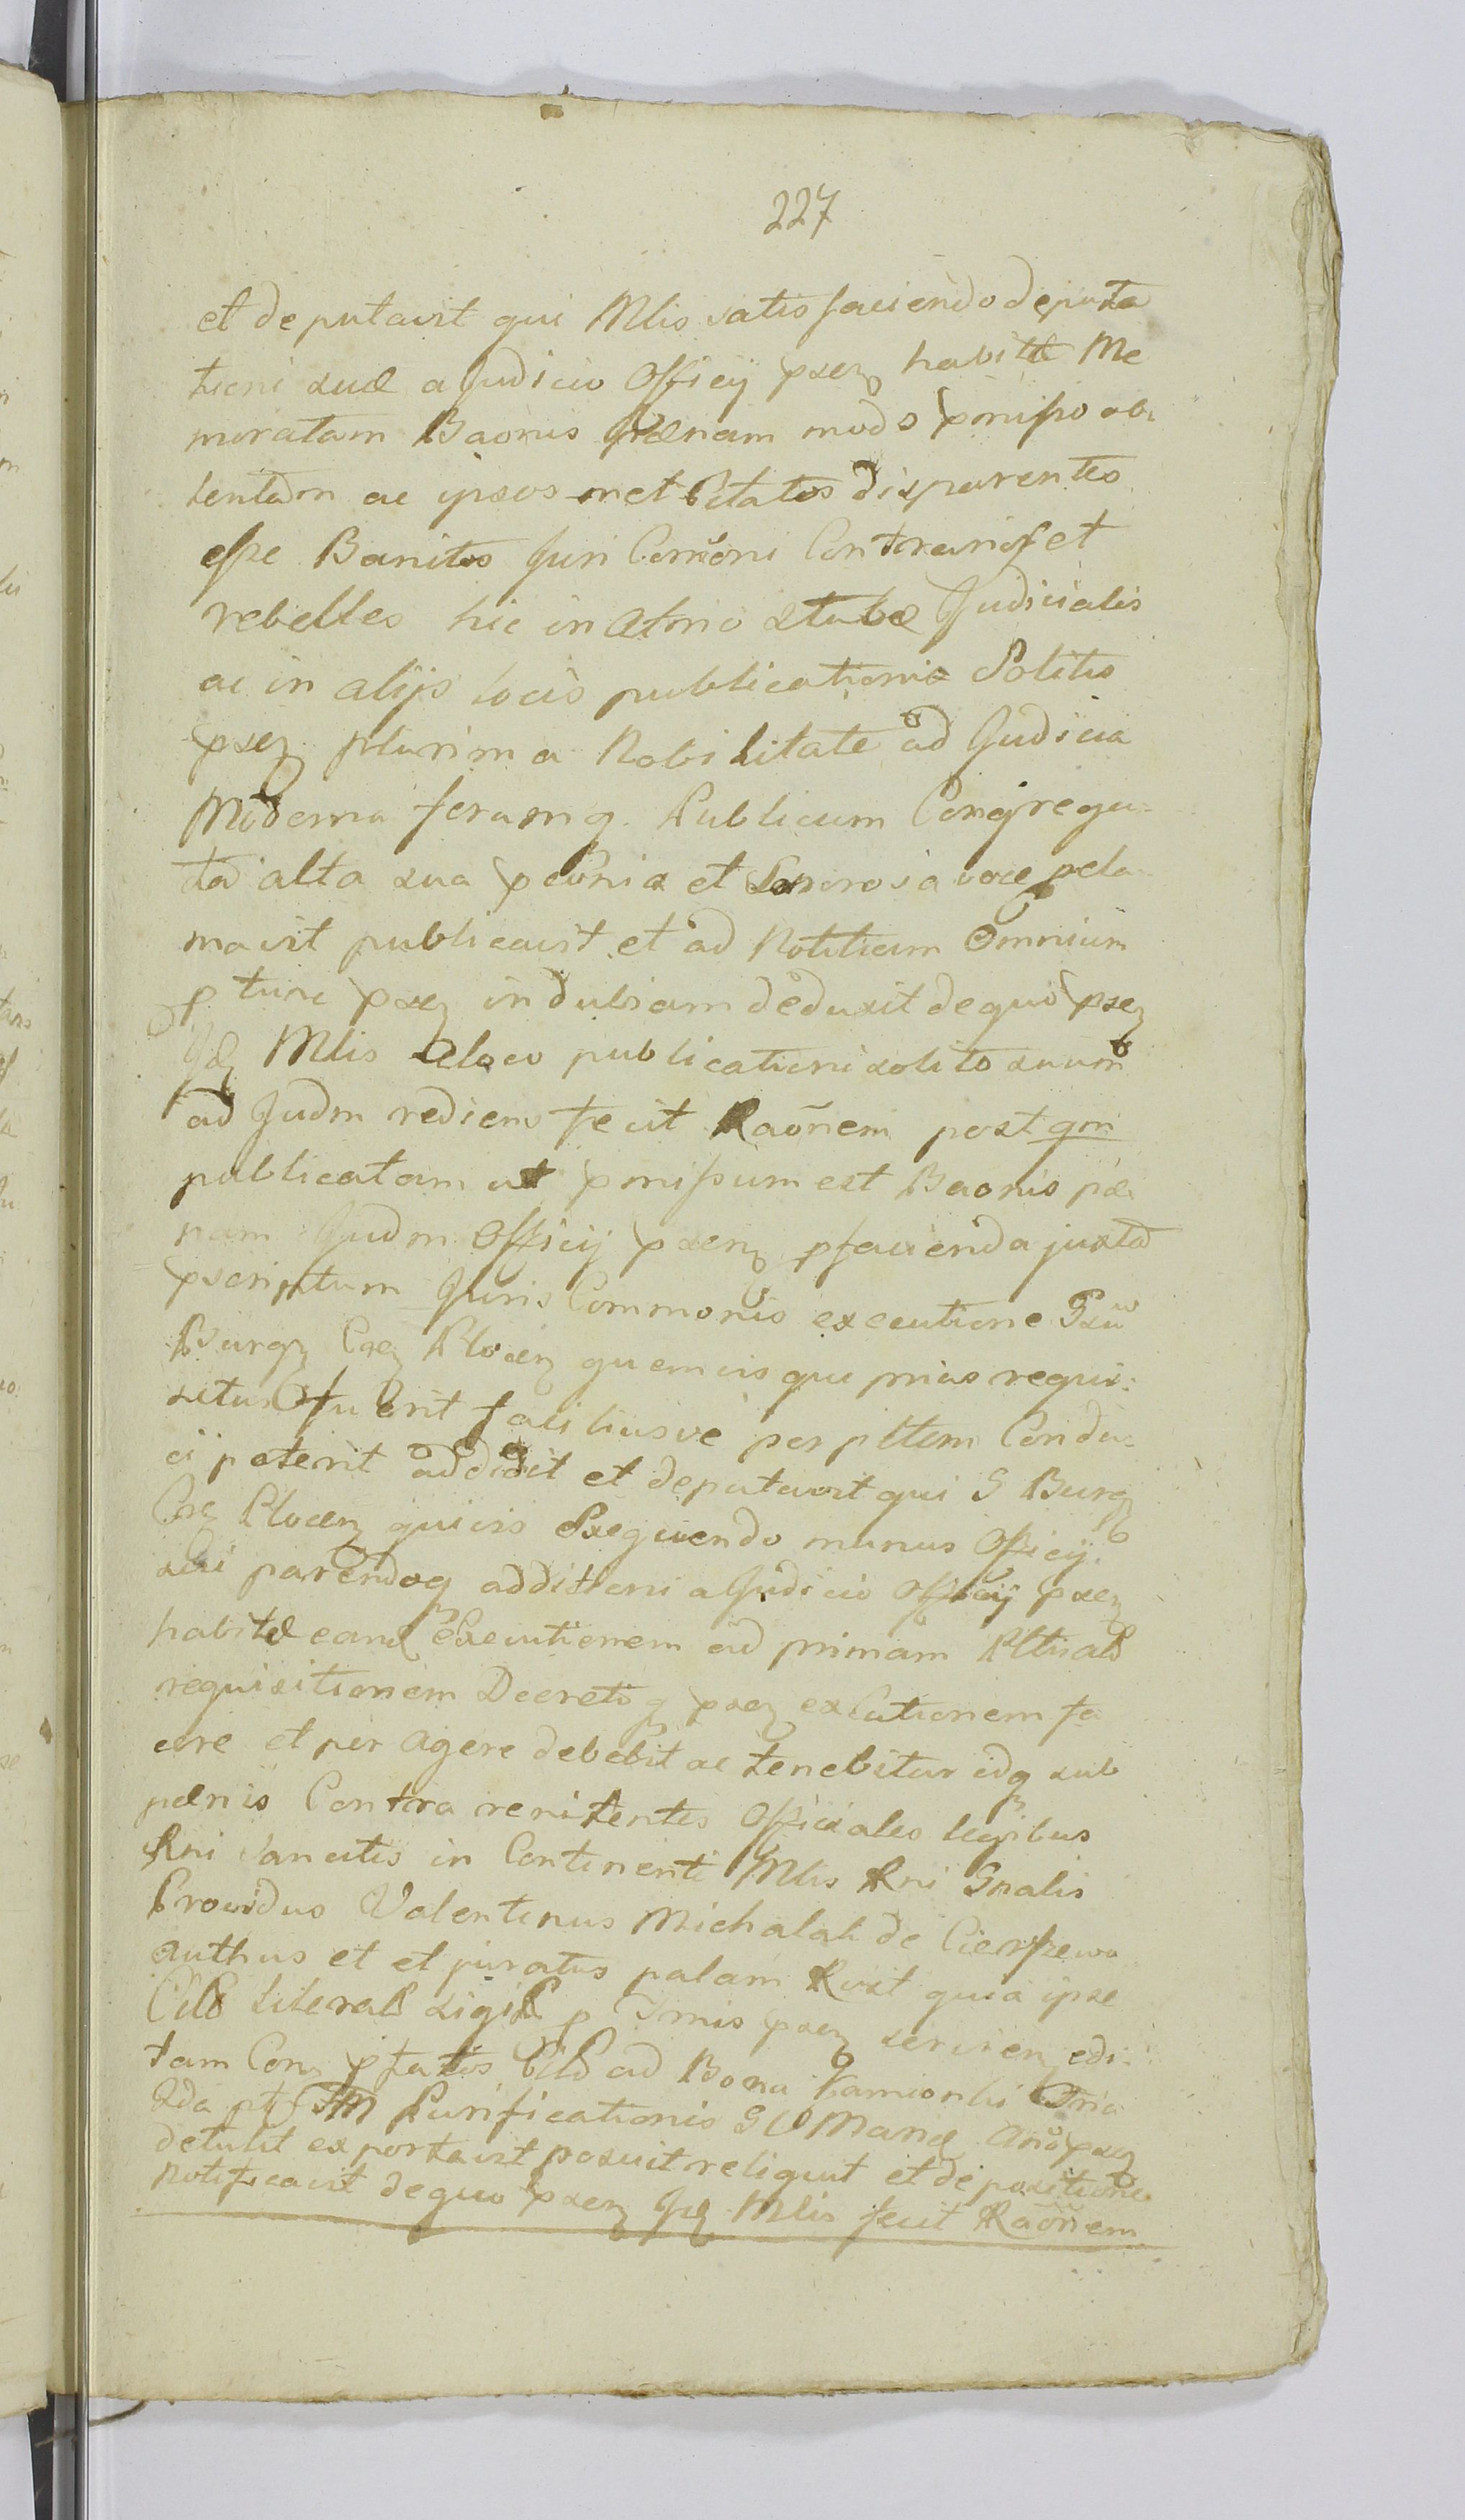 227
et deputavit qui Mlis satisfaciendo deputa
tioni suæ a Judicio Officij psez habitæ Me
moratam Baonis pœnam modo pmisso ob
tentam ac ipsos met Citatos disparentes
esse Banitos Juri Comoni Contrarios et
rebelles hic in atrio stubæ Judicialis
ac in alijs locis publicationis Solitis
psez plurima Nobilitate ad Judicia
Moderna forumq Publicum Congrega-
ta alta sua pconis et Sonorosa voce pcla
mavit publicavit et ad Notitiam Omnium
p tunc psez indubiam deduxit de quo psez
Idz Mlis a loco publicationi solito suum
ad Judm rediens fecit Raõnem post qm
publicatam ut pmissum est Baonis pæ
nam Judm Officij psenz pfacienda juxta
pscriptum Juris Commonis executione Gsu
Burgz Csz Plocenz quemvis qui prius requi:
situs fuerit faciliusve per pttem Condu:
ci poterit addidit et deputavit qui G Burgz
Csz Plocenz quivis Exequendo munus Officij
sui parendoq additioni a Judicio Officij psez
habitæ eand Executionem ad primam Pltis ald
requisitionem Decretiq psez exCutionem fa
cere et per agere debebit ac tenebitur idq sub
pænis Contra renitentes Officiales legibus
Rni sancitis in Continenti Mlis Rni Gnalis
Providus Valentinus Michalak de Cierszewo
authus et et juratus palam Rvit quia ipse
Cils literals sigils p Tmis psez servien edi-
tam Con pfatos Cils ad Bona Kamionki
Qda pt Fm Purificationis G V Mariæ Ano psez
detulit exportavit posuit reliquit et de positione
notificavit de quo psez Idz Mlis fecit Raõnem